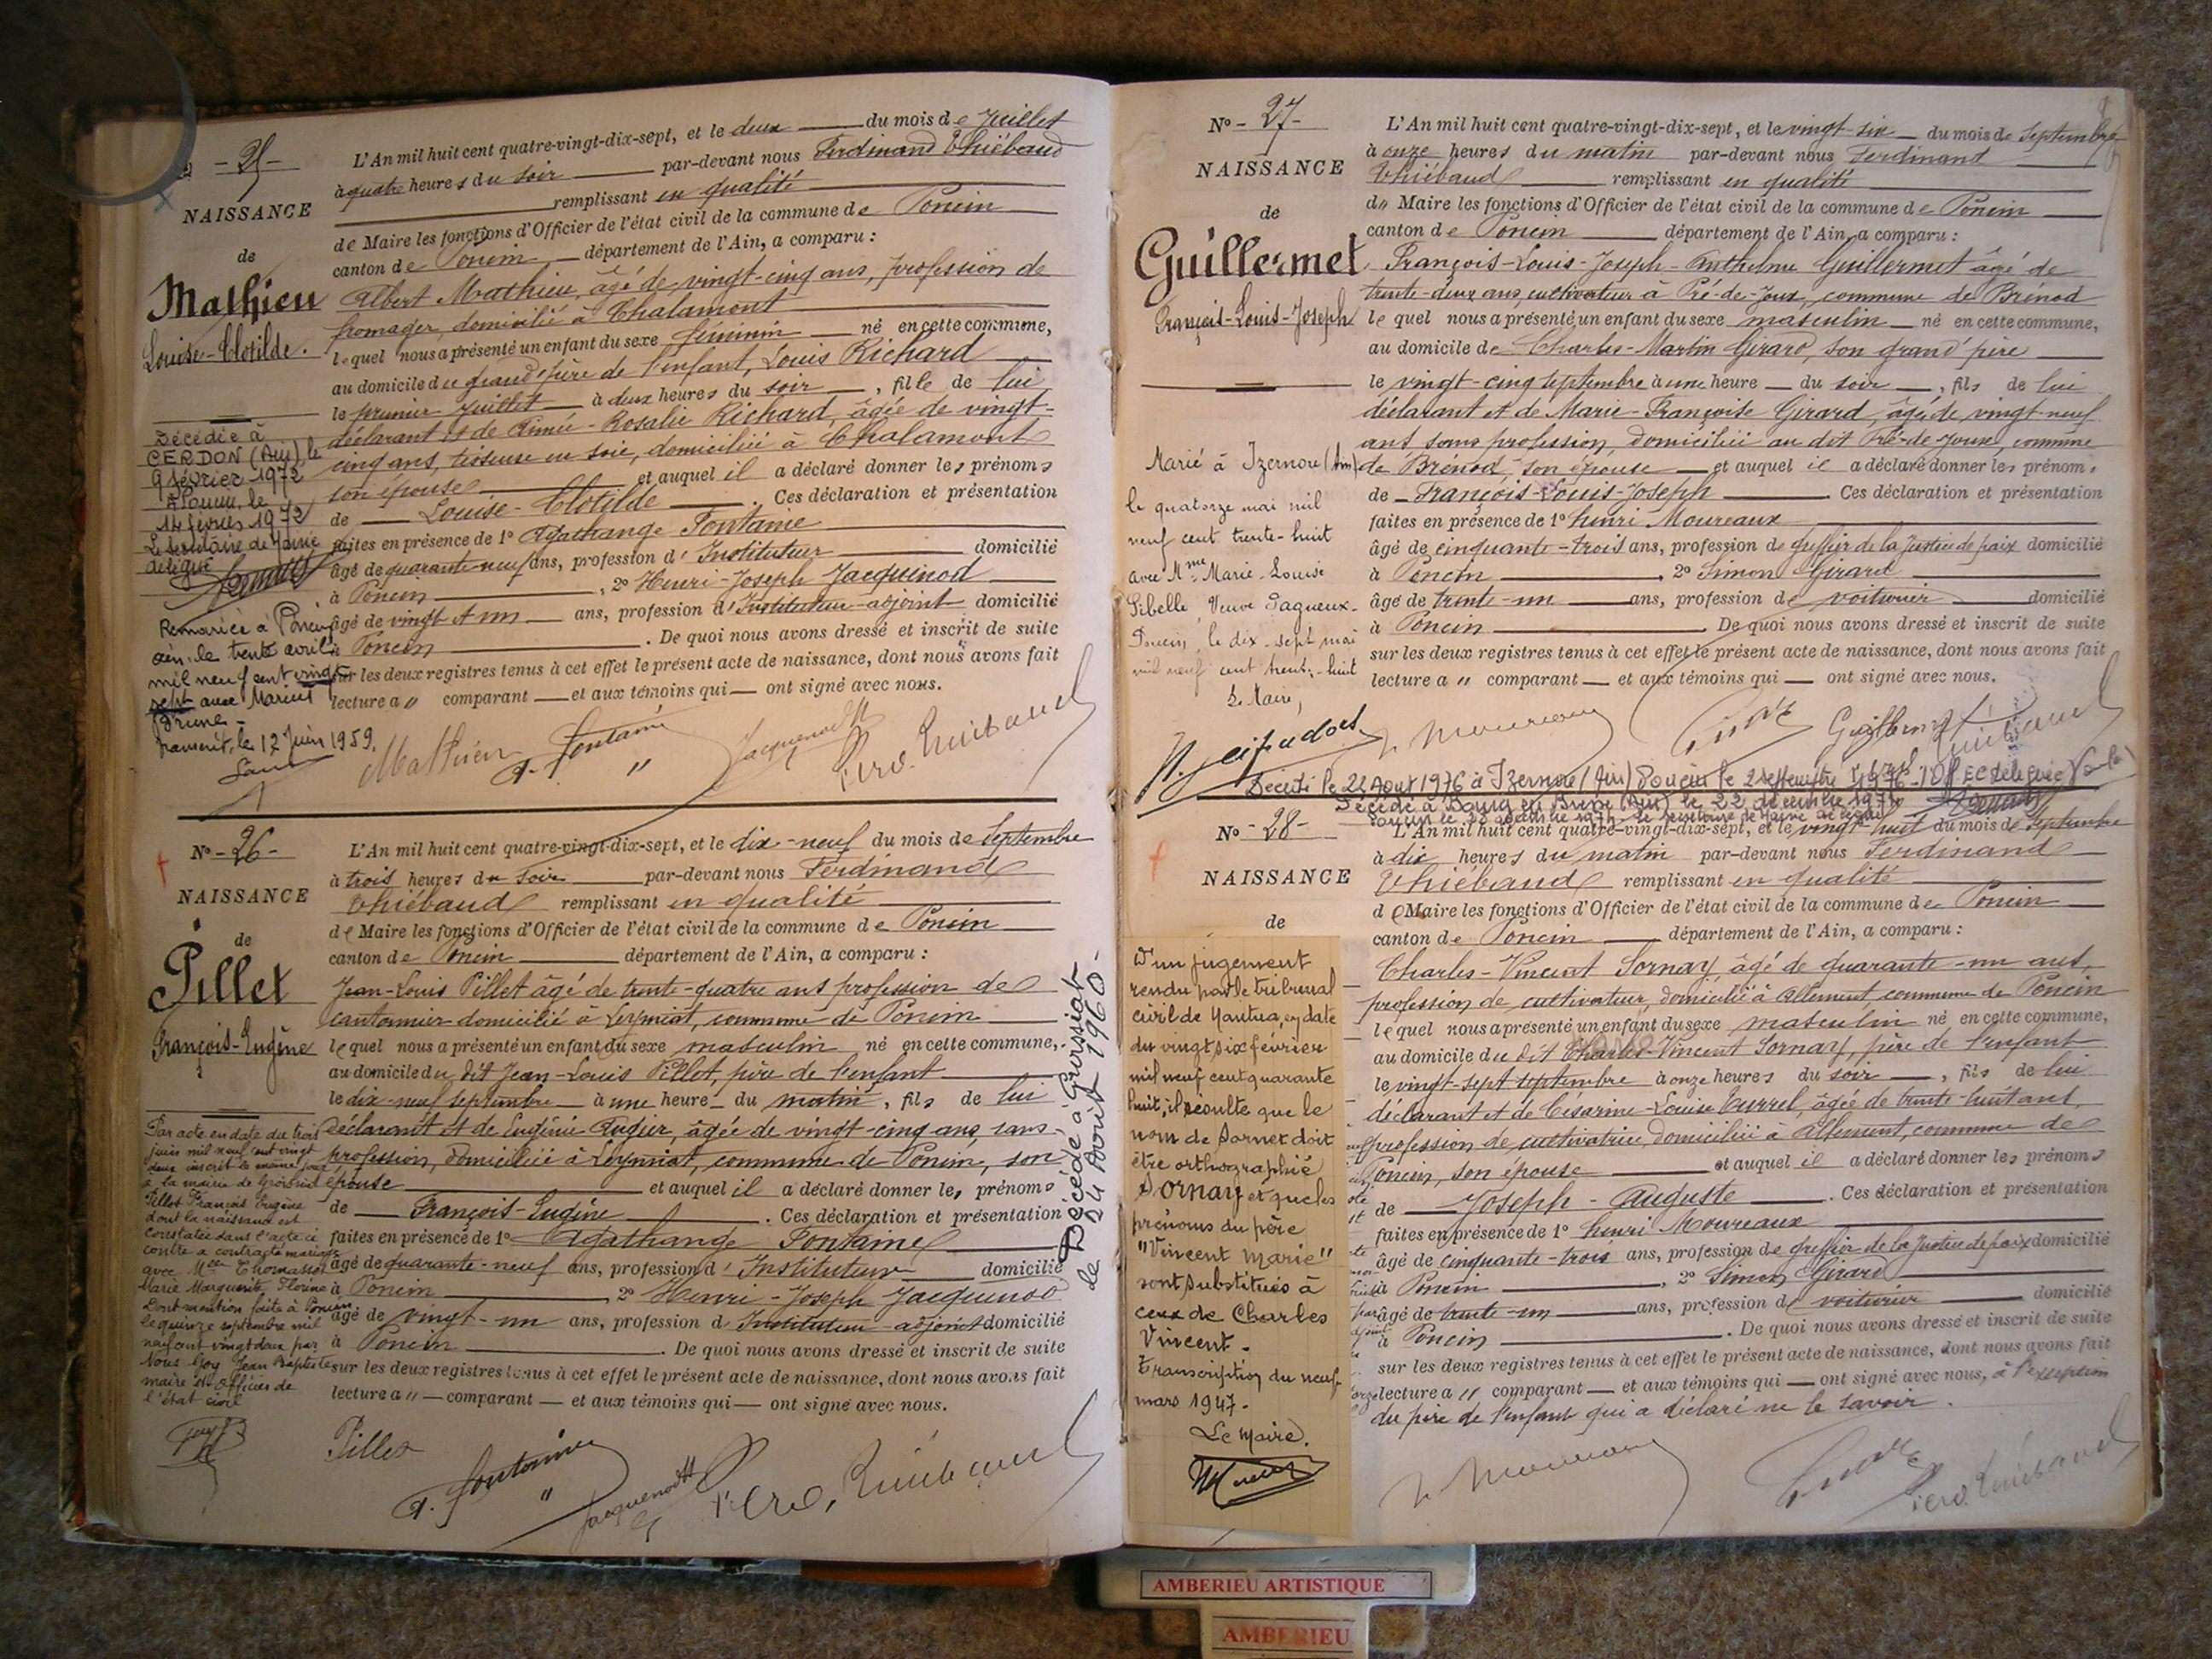 - 25 -
NAISSANCE
de
Mathieu
Louise-Clotilde.
L'An mil huit cent quatre-vingt-dix-sept, et le deux du mois de Juillet
à quatre heures du soir par-devant nous Ferdinand Thiébaud
remplissant en qualité
de Maire les fonctions d'Officier de l'état civil de la commune de Poncin
canton de Poncin département de l'Ain, a comparu :
Albert Mathieu, âgé de vingt-cinq ans, profession de
fromager, domicilié à Chalamont
lequel nous a présenté un enfant du sexe féminin né en cette commune,
au domicile du grand'père de l'enfant, Louis Richard
le premier Juillet à deux heures du soir, fille de lui
déclarant et de Aimée-Rosalie Richard, âgée de vingt-
cinq ans, tisseuse en soie, domiciliée à Chalamont
son épouse et auquel il a déclaré donner les prénoms
de Louise-Clotilde. Ces déclaration et présentation
faites en présence de 1° Agathange Fontaine
âgé de quarante-neuf ans, profession d'Instituteur domicilié
à Poncin, 2° Henri-Joseph Jacquinod
âgé de vingt et un ans, profession d'Instituteur-adjoint domicilié
à Poncin. De quoi nous avons dressé et inscrit de suite
sur les deux registres tenus à cet effet le présent acte de naissance, dont nous avons fait
lecture a " comparant et aux témoins qui ont signé avec nous.
Décédée à
CERDON (Ain), le
9 février 1972
A Poncin, le
14 février 1972
Le secrétaire de Mairie
délégué
Remariée à Poncin
Ain, le trente avril
mil neuf cent vingt
sept avec Marius
Prune -
transcrit, le 12 Juin 1959.
Mathieu A. Fontaine Jacquenod H Ferd. Thiébaud
N° - 26 -
NAISSANCE
de
Pillet
François-Eugène
L'An mil huit cent quatre-vingt-dix-sept, et le dix-neuf du mois de Septembre
à trois heures du soir par-devant nous Ferdinand
Thiébaud remplissant en qualité
de Maire les fonctions d'Officier de l'état civil de la commune de Poncin
canton de Poncin département de l'Ain, a comparu :
Jean-Louis Pillet âgé de trente-quatre ans profession de
cantonnier domicilié à Leymiat, commune de Poncin
lequel nous a présenté un enfant du sexe masculin né en cette commune,
au domicile du dit Jean-Louis Pillet, père de l'enfant
le dix-neuf Septembre à une heure du matin, fils de lui
déclarant et de Eugénie Augier, âgée de vingt-cinq ans, sans
profession, domiciliée à Leymiat, commune de Poncin, son
épouse et auquel il a déclaré donner les prénoms
de François-Eugène. Ces déclaration et présentation
faites en présence de 1° Agathange Fontaine
âgé de quarante-neuf ans, profession d'Instituteur domicilié
à Poncin 2° Henri-Joseph Jacquinod
âgé de vingt-un ans, profession d'Instituteur-adjoint domicilié
à Poncin. De quoi nous avons dressé et inscrit de suite
sur les deux registres tenus à cet effet le présent acte de naissance, dont nous avons fait
lecture a " comparant et aux témoins qui ont signé avec nous.
Par acte en date du trois
juin mil neuf cent vingt
deux inscrit le même jour
à la mairie de
Pillet François Eugène
dont la naissance est
constatée dans l'acte ci
contre a contracté mariage
avec Melle Thomasset
Marie Marguerite Florine
Dont mention faite à Poncin
le quinze septembre mil
neuf cent vingt deux par
Nous Goy Jean Baptiste
maire et officier de
l'état civil
Décédé à Gorssiat
le 24 Août 1960-
Pillet A. Fontaine Jacquenod H Ferd. Thiébaud
N° - 27 -
NAISSANCE
de
Guillermet
François-Louis-Joseph
L'An mil huit cent quatre-vingt-dix-sept, et le vingt-six du mois de Septembre
à onze heures du matin par-devant nous Ferdinant
Thiébaud remplissant en qualité
du Maire les fonctions d'Officier de l'état civil de la commune de Poncin
canton de Poncin département de l'Ain, a comparu :
François-Louis-Joseph-Anthelme Guillermet âgé de
trente-deux ans, cultivateur à Pré-de-Joux, commune de Brénod
lequel nous a présenté un enfant du sexe masculin né en cette commune,
au domicile de Charles-Martin Girard, son grand'père
le vingt-cinq septembre à une heure du soir, fils de lui
déclarant et de Marie-Françoise Girard, âgée de vingt-neuf
ans, sans profession, domiciliée au dit Pré-de-Joux, commune
de Brénod, son épouse et auquel il a déclaré donner les prénoms
de François-Louis-Joseph. Ces déclaration et présentation
faites en présence de 1° henri Moureaux
âgé de cinquante-trois ans, profession de greffier de la Justice de paix domicilié
à Poncin, 2° Simon Girard
âgé de trente-un ans, profession de voiturier domicilié
à Poncin. De quoi nous avons dressé et inscrit de suite
sur les deux registres tenus à cet effet le présent acte de naissance, dont nous avons fait
lecture a " comparant et aux témoins qui ont signé avec nous.
Marié à Izernore (Ain)
le quatorze mai mil
neuf cent trente-huit
avec Mme Marie-Louise
Sibelle, Veuve Pagneux.
Poncin, le dix-sept mai
mil neuf cent trente-huit
Le Maire,
H. Moureaux Girard Guillermet Ferd. Thiébaud
Décédé le 22 Aout 1976 à Izernore (Ain) Poncin le 2 septembre 1976 - l'Off EC délégué
Décédé à Bourg en Bresse (Ain) le 22 décembre 1971
N° - 28 -
NAISSANCE
de
L'An mil huit cent quatre-vingt-dix-sept, et le vingt-huit du mois de Septembre
à dix heures du matin par-devant nous Ferdinand
Thiébaud remplissant en qualité
de Maire les fonctions d'Officier de l'état civil de la commune de Poncin
canton de Poncin département de l'Ain, a comparu :
Charles-Vincent Sornay, âgé de quarante-un ans,
profession de cultivateur, domicilié à Allement, commune de Poncin
lequel nous a présenté un enfant du sexe masculin né en cette commune,
au domicile du dit Charles-Vincent Sornay, père de l'enfant
le vingt-sept septembre à onze heures du soir, fils de lui
déclarant et de Césarine-Louise Currel, âgée de trente-huit ans,
profession de cultivatrice, domiciliée à Allement, commune de
Poncin, son épouse et auquel il a déclaré donner les prénoms
de Joseph-Auguste. Ces déclaration et présentation
faites en présence de 1° henri Moureaux
âgé de cinquante-trois ans, profession de greffier de la Justice de paix domicilié
à Poncin, 2° Simon Girard
âgé de trente-un ans, profession de voiturier domicilié
à Poncin. De quoi nous avons dressé et inscrit de suite
sur les deux registres tenus à cet effet le présent acte de naissance, dont nous avons fait
lecture a " comparant et aux témoins qui ont signé avec nous, à l'exception
du père de l'enfant qui a déclaré ne le savoir.
D'un jugement
rendu par le tribunal
civil de Nantua, en date
du vingt six février
mil neuf cent quarante
huit, il résulte que le
nom de Sornet doit
être orthographié
Sornay et que les
prénoms du père
"Vincent Marie"
sont substitués à
ceux de Charles
Vincent.
Transcription du neuf
mars 1947.
Le Maire.
H. Moureaux Girard Ferd. Thiébaud
AMBERIEU ARTISTIQUE
AMBERIEU